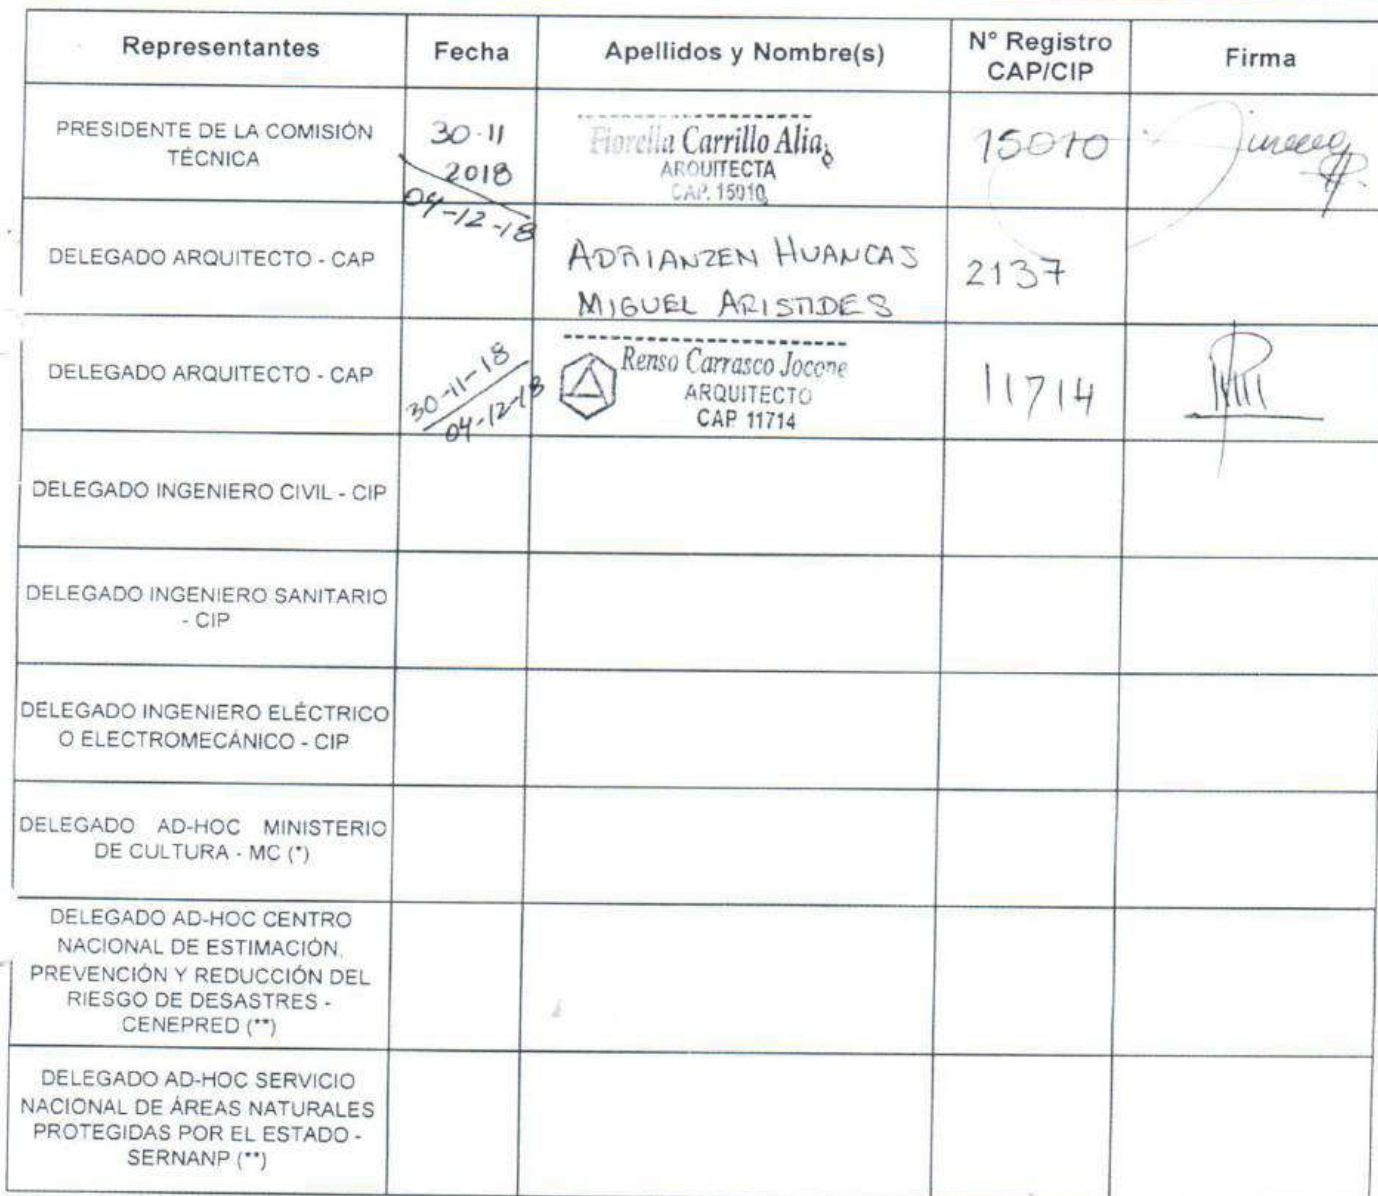 Representantes
Fecha
Apellidos y Nombre(s)
N° Registro
CAP/CIP
Firma
PRESIDENTE DE LA COMISIÓN
TÉCNICA
30-11
2018
04-12-18
Fiorella Carrillo Alia
ARQUITECTA
CAP. 15010
15010
DELEGADO ARQUITECTO - CAP
ADRIANZEN HUANCAS
MIGUEL ARISTIDES
2137
DELEGADO ARQUITECTO - CAP
30-11-18
04-12-18
Renso Carrasco Jocone
ARQUITECTO
CAP 11714
11714
DELEGADO INGENIERO CIVIL - CIP
DELEGADO INGENIERO SANITARIO
- CIP
DELEGADO INGENIERO ELÉCTRICO
O ELECTROMECÁNICO - CIP
DELEGADO AD-HOC MINISTERIO
DE CULTURA - MC (*)
DELEGADO AD-HOC CENTRO
NACIONAL DE ESTIMACIÓN,
PREVENCIÓN Y REDUCCIÓN DEL
RIESGO DE DESASTRES -
CENEPRED (**)
DELEGADO AD-HOC SERVICIO
NACIONAL DE ÁREAS NATURALES
PROTEGIDAS POR EL ESTADO -
SERNANP (**)